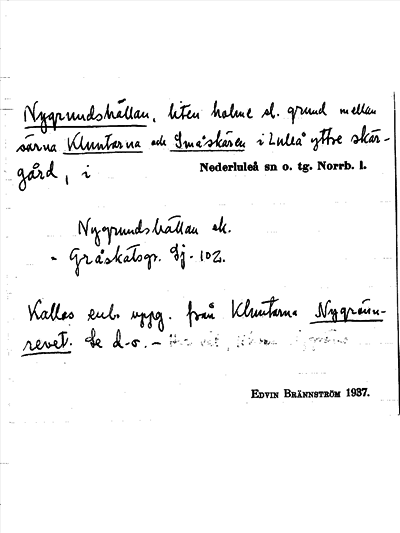 Nygrundshällan, liten holme el. grund mellan
öarna Kluntarna och Småskären i Luleå yttre skär-
gård, i Nederluleå sn o. tg. Norrb. l.
Nygrundshällan ek.
- Gråskatsgr. Sj. 102.
Kallas enl. uppg. från Kluntarna Nygränn-
revet. Se d.o. -
EDVIN BRÄNNSTRÖM 1937.